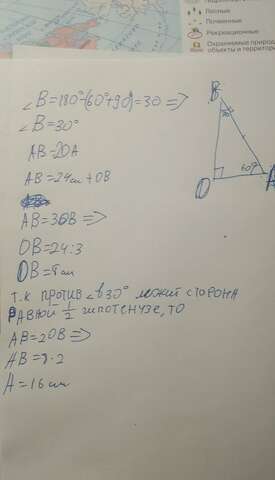 Лесные
Почвенные
Рекреационные
Охраняемые природ
объекты и территори
∠B=180°-(60°+90°)=30 =>
∠B=30°
AB=2OA
AB=24см+OB
AB=3OB =>
OB=24:3
OB=8см
т.к против ∠В30° лежит сторона
равной 1/2 гипотенузе, то
AB=2OB =>
AB=8·2
A=16см
B
30°
O
60°
A